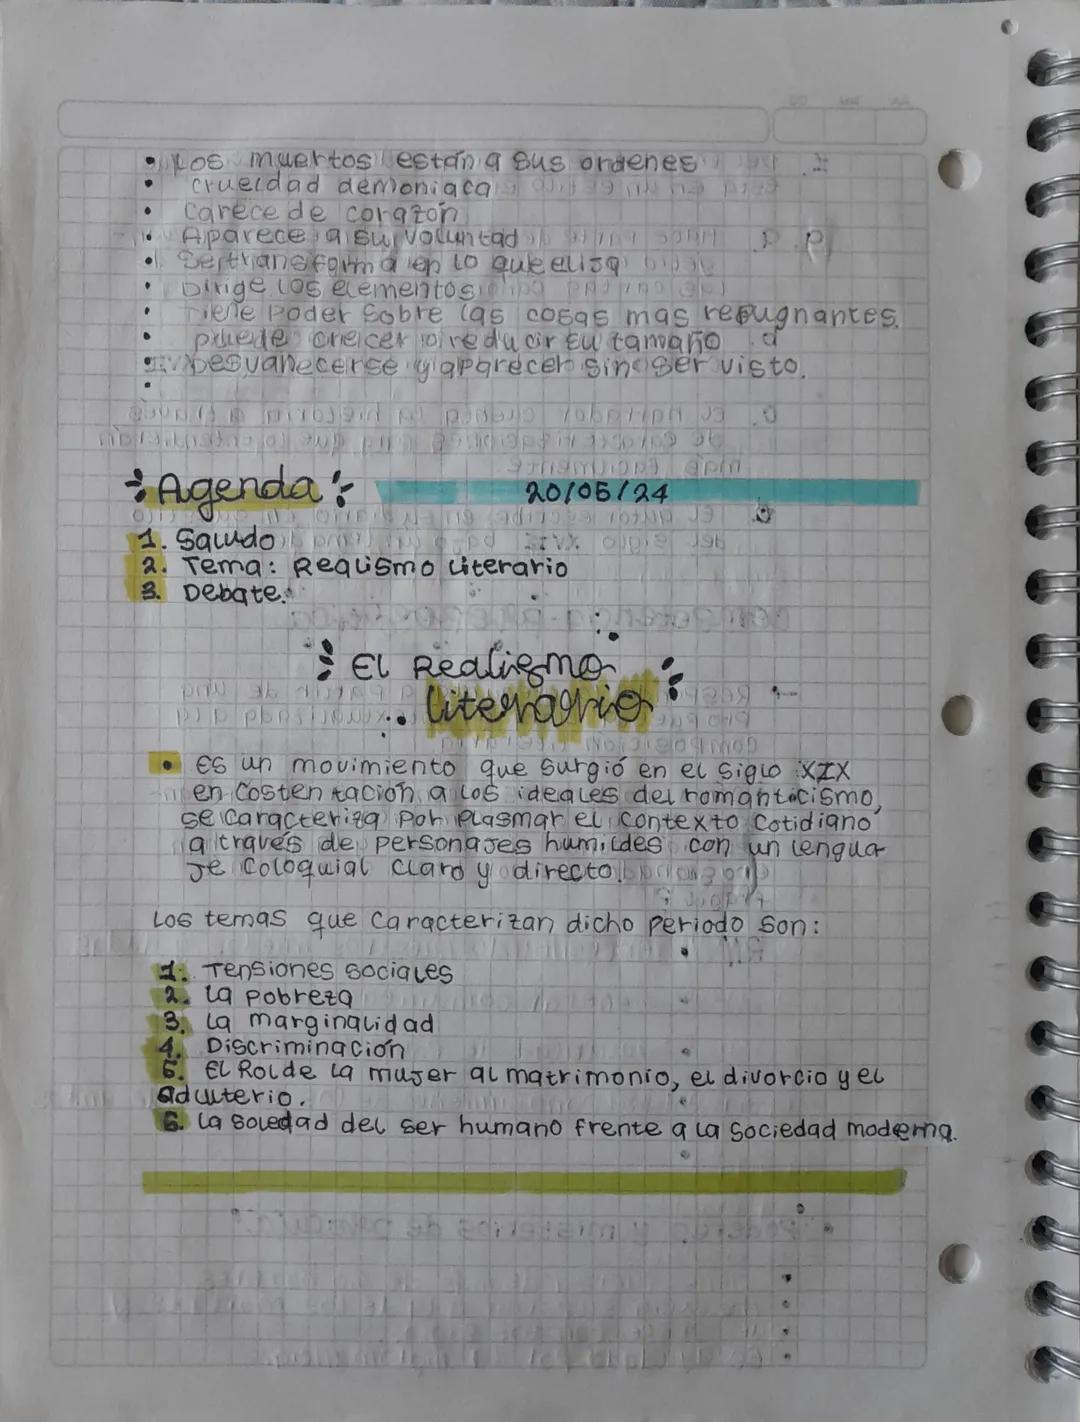 • Los muertos están a sus ordenes
• crueldad demoniaca
• carece de corazón
• Aparece a su voluntad
• Se transforma en lo que elija
• Dirige los elementos
• Tiene Poder Sobre las cosas mas repugnantes.
• puede crecer o reducir su tamaño
• Desvanecerse y aparecer sin ser visto.
•
Agenda 20/05/24
1. Saludo
2. Tema: Realismo Literario
3. Debate.
El Realismo
Literario
• Es un movimiento que surgió en el siglo XIX
en costentación a los ideales del romanticismo,
se caracteriza por plasmar el contexto cotidiano
a través de personajes humildes con un lengua
je coloquial claro y directo.
Los temas que caracterizan dicho periodo son:
1. Tensiones sociales
2. La pobreza
3. La marginalidad
4. Discriminación
5. El Rol de la mujer al matrimonio, el divorcio y el
adulterio.
6. La soledad del ser humano frente a la sociedad moderna.